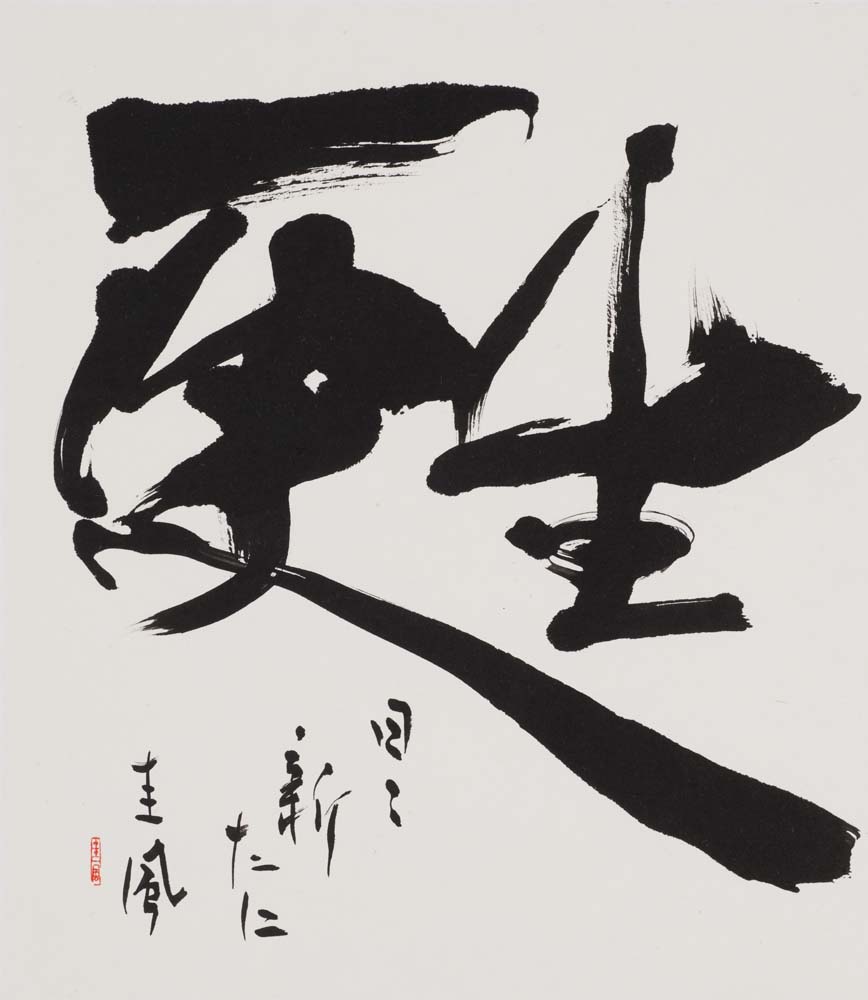 甦
日々
新
たに
圭風